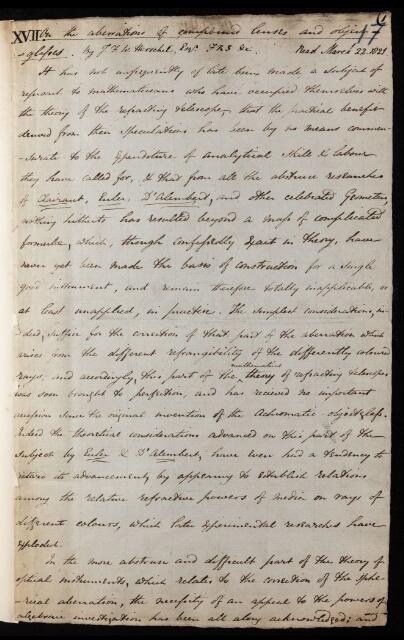 XVII. On the aberrations of compound lenses and object 17
-glasses. By J. F. W. Herschel, Esqr. F.R.S. &c. Read March 22. 1821
It has not unfrequently of late been made a subject of
reproach to mathematicians who have occupied themselves with
the theory of the refracting telescope, that the practical benefit
derived from their speculations has been by no means commen-
-surate to the expenditure of analytical skill & labour
they have called for, & that from all the abstruse researches
of Clairaut, Euler, D'Alembert, and other celebrated Geometers,
nothing hitherto has resulted beyond a mass of complicated
formulæ, which, though confessedly exact in theory, have
never yet been made the basis of construction for a single
good instrument, and remain therefore totally inapplicable, or
at least unapplied, in practice. The simplest considerations, in-
-deed, suffice for the correction of that part of the aberration which
arises from the different refrangibility of the differently coloured
rays, and accordingly, this part of the mathematical theory of refracting telescopes
was soon brought to perfection, and has received no important
accession since the original invention of the Achromatic object glass.
Indeed the theoretical considerations advanced on this part of the
subject by Euler & D'Alembert, have even had a tendency to
its advancement, by appearing to establish relations
among the relative refractive powers of media on rays of
different colours, which later experimental researches have
exploded.
In the more abstruse and difficult part of the theory of
optical instruments, which relates to the correction of the sphe-
-rical aberration, the necessity of an appeal to the powers of
algebraic investigation has been all along acknowledged; and